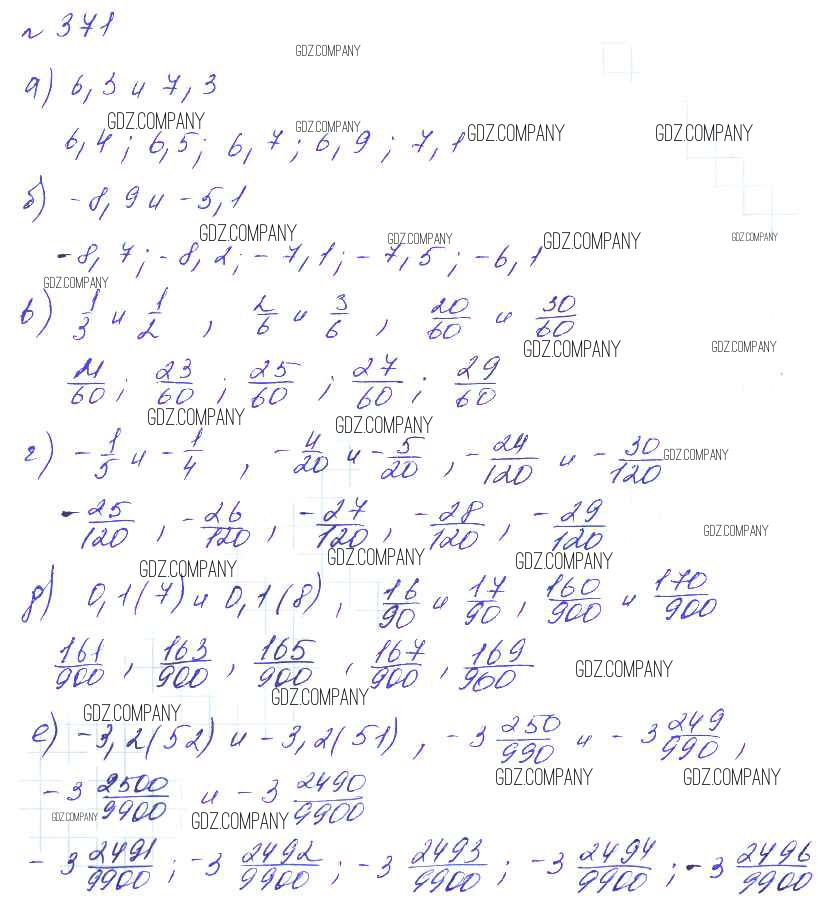 № 371
GDZ.COMPANY
а) 6,3 и 7,3
GDZ.COMPANY GDZ.COMPANY GDZ.COMPANY GDZ.COMPANY
6,4; 6,5; 6,7; 6,9; 7,1
б) -8,9 и -5,1
GDZ.COMPANY GDZ.COMPANY GDZ.COMPANY GDZ.COMPANY
-8,7; -8,2; -7,1; -7,5; -6,1
GDZ.COMPANY
в) 1/3 и 1/2, 2/6 и 3/6, 20/60 и 30/60
GDZ.COMPANY GDZ.COMPANY
21/60; 23/60; 25/60; 27/60; 29/60
GDZ.COMPANY GDZ.COMPANY
г) -1/5 и -1/4, -4/20 и -5/20, -24/120 и -30/120
GDZ.COMPANY
-25/120, -26/120, -27/120, -28/120, -29/120
GDZ.COMPANY
GDZ.COMPANY GDZ.COMPANY GDZ.COMPANY
д) 0,1(7) и 0,1(8), 16/90 и 17/90, 160/900 и 170/900
161/900, 163/900, 165/900, 167/900, 169/900
GDZ.COMPANY
GDZ.COMPANY GDZ.COMPANY
е) -3,2(52) и -3,2(51), -3 250/990 и -3 249/990,
GDZ.COMPANY GDZ.COMPANY
-3 2500/9900 и -3 2490/9900
GDZ.COMPANY GDZ.COMPANY
-3 2491/9900; -3 2492/9900; -3 2493/9900; -3 2494/9900; -3 2496/9900